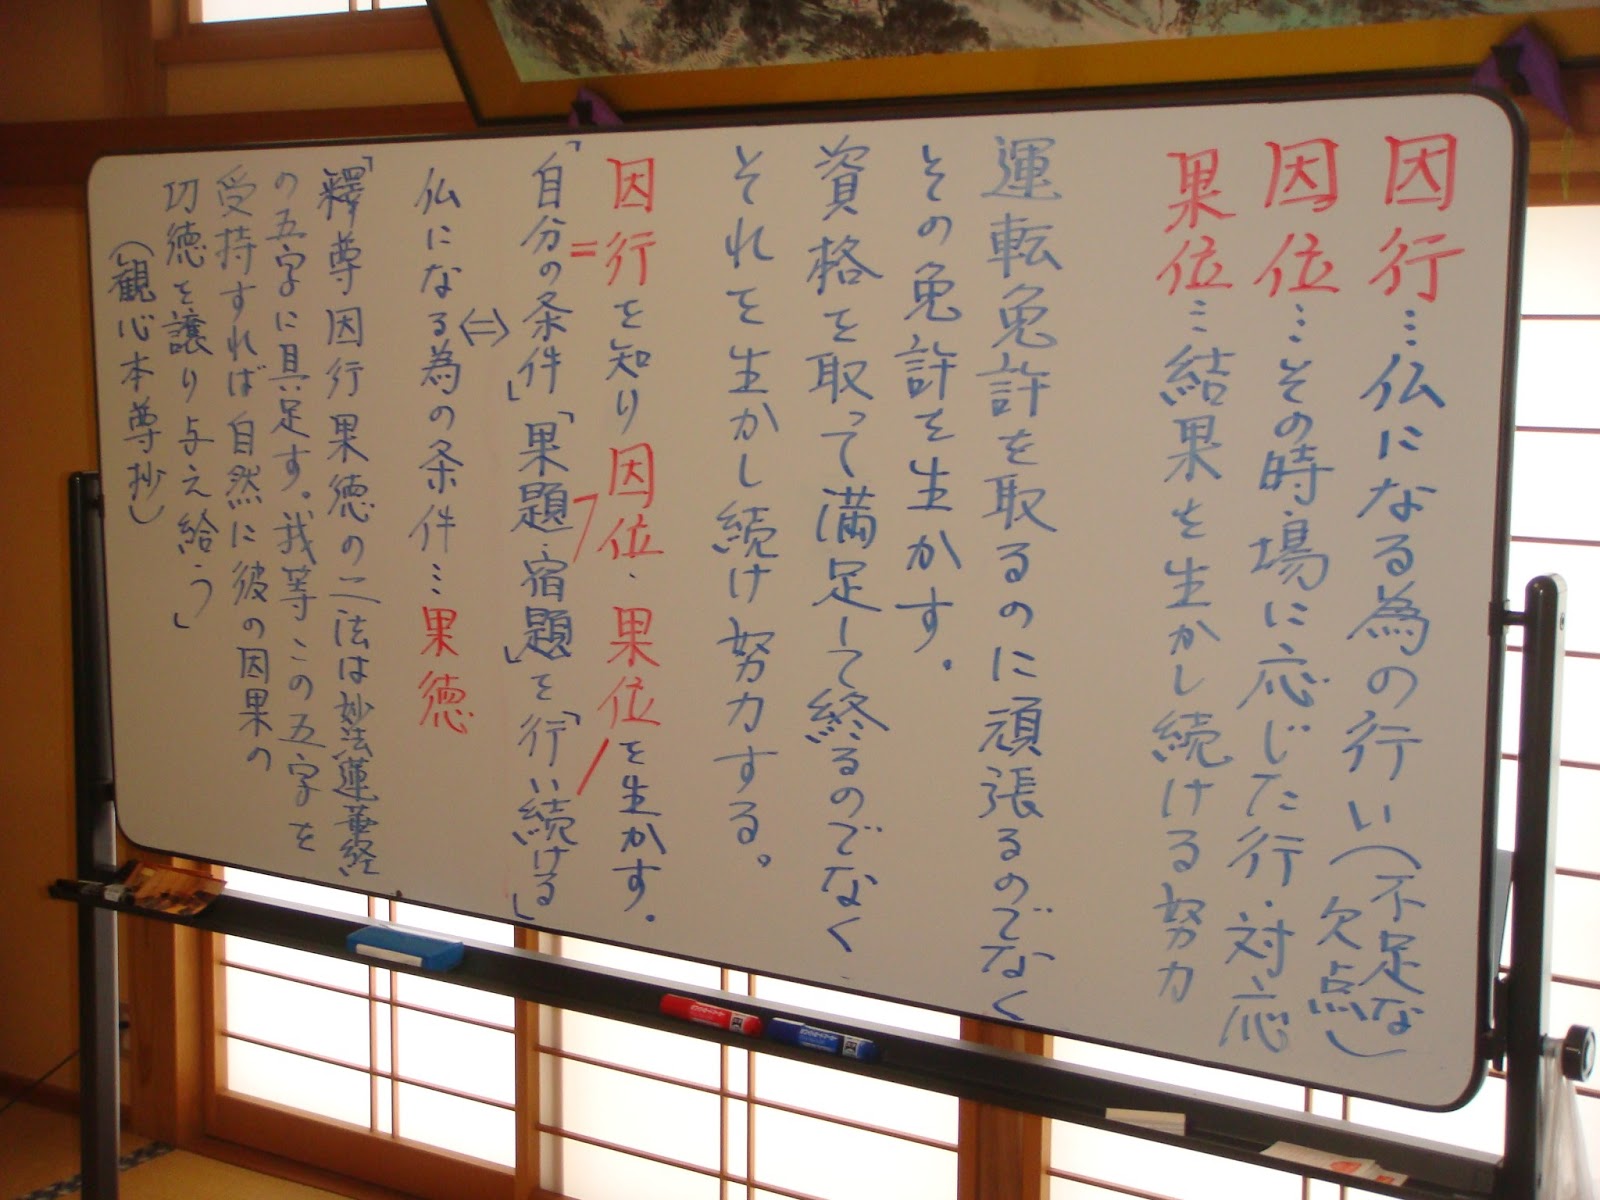 因行…仏になる為の行い(不足な
欠点)
因位…その時、場に応じた行・対応
果位…結果を生かし続ける努力
運転免許を取るのに頑張るのでなく
その免許を生かす。
資格を取って満足して終るのでなく
それを生かし続け努力する。
因行を知り因位、果位を生かす。
「自分の条件」「果題・宿題」を「行い続ける」
仏になる為の条件…果徳
「釋尊因行果徳の二法は妙法蓮華経
の五字に具足す。我等この五字を
受持すれば自然に彼の因果の
功徳を譲り与え給う」
(観心本尊抄)